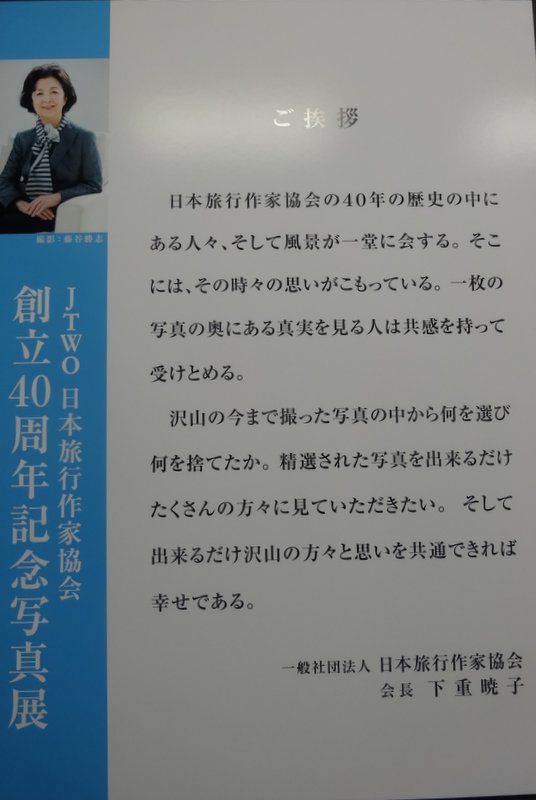 ご挨拶
日本旅行作家協会の40年の歴史の中に
ある人々、そして風景が一堂に会する。そこ
には、その時々の思いがこもっている。一枚の
写真の奥にある真実を見る人は共感を持って
受けとめる。
沢山の今まで撮った写真の中から何を選び
何を捨てたか。精選された写真を出来るだけ
たくさんの方々に見ていただきたい。そして
出来るだけ沢山の方々と思いを共通できれば
幸せである。
一般社団法人 日本旅行作家協会
会長 下重暁子
撮影:藤谷勝志
JTWO 日本旅行作家協会
創立40周年記念写真展